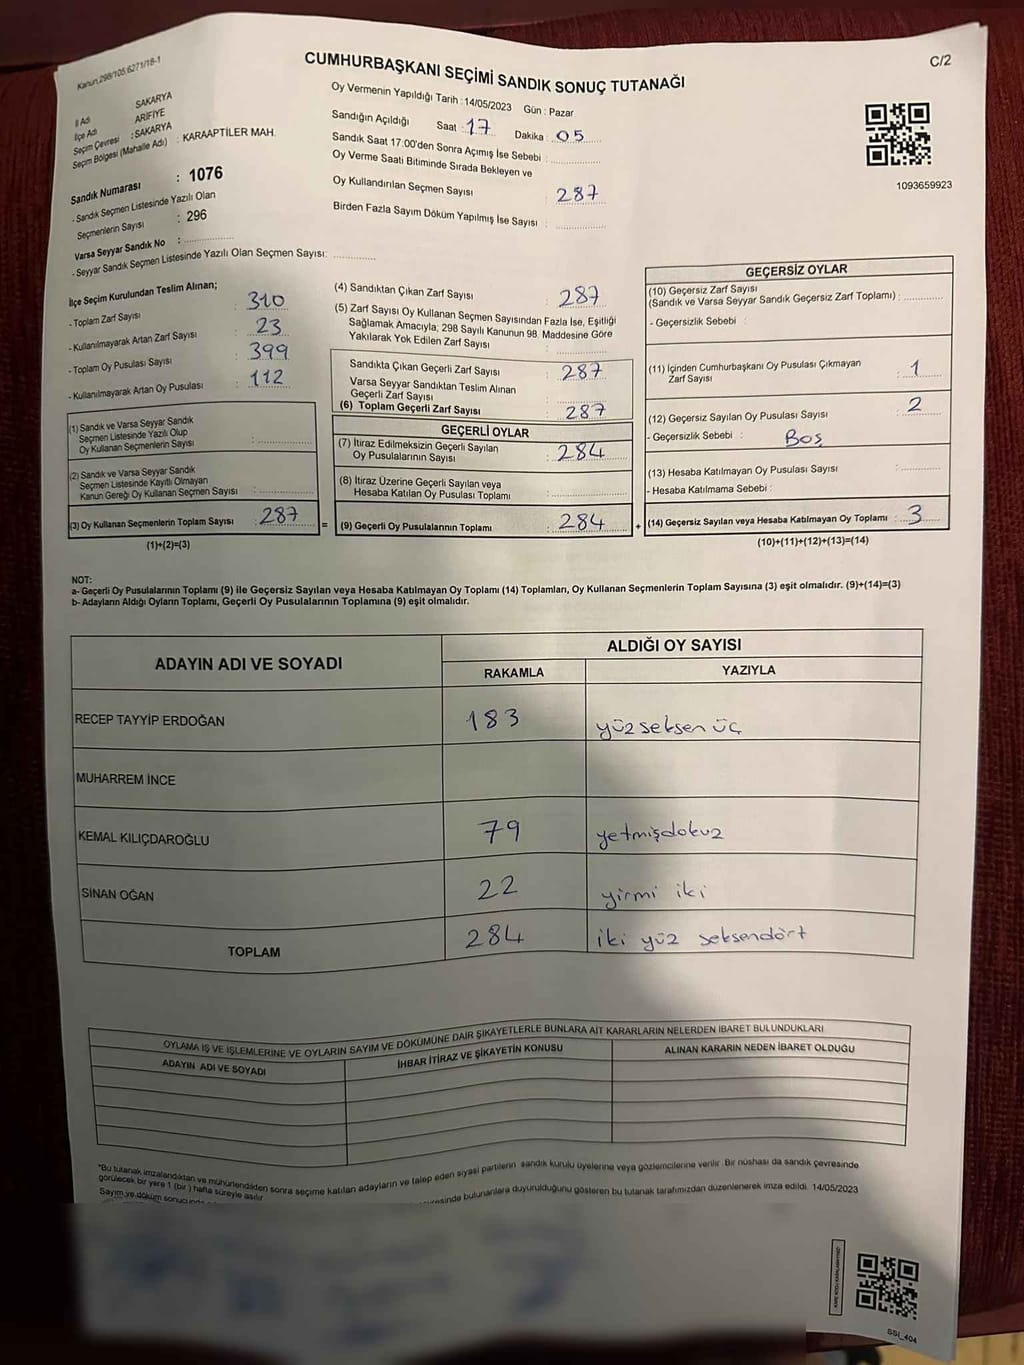 Kanun.298/105;6271/18-1
C/2
CUMHURBAŞKANI SEÇİMİ SANDIK SONUÇ TUTANAĞI
Oy Vermenin Yapıldığı Tarih : 14/05/2023 Gün : Pazar
İl Adı SAKARYA
İlçe Adı ARİFİYE
Seçim Çevresi : SAKARYA
Seçim Bölgesi (Mahalle Adı) : KARAAPTİLER MAH.
Sandık Numarası : 1076
- Sandık Seçmen Listesinde Yazılı Olan
Seçmenlerin Sayısı : 296
Varsa Seyyar Sandık No :
- Seyyar Sandık Seçmen Listesinde Yazılı Olan Seçmen Sayısı:
Sandığın Açıldığı Saat : 17 Dakika : 05
Sandık Saat 17:00'den Sonra Açımış İse Sebebi :
Oy Verme Saati Bitiminde Sırada Bekleyen ve
Oy Kullandırılan Seçmen Sayısı 287
Birden Fazla Sayım Döküm Yapılmış İse Sayısı :
1093659923
İlçe Seçim Kurulundan Teslim Alınan;
- Toplam Zarf Sayısı : 310
- Kullanılmayarak Artan Zarf Sayısı : 23
- Toplam Oy Pusulası Sayısı : 399
- Kullanılmayarak Artan Oy Pusulası : 112
(1) Sandık ve Varsa Seyyar Sandık
Seçmen Listesinde Yazılı Olup
Oy Kullanan Seçmenlerin Sayısı :
(2) Sandık ve Varsa Seyyar Sandık
Seçmen Listesinde Kayıtlı Olmayan
Kanun Gereği Oy Kullanan Seçmen Sayısı :
(3) Oy Kullanan Seçmenlerin Toplam Sayısı : 287
(1)+(2)=(3)
=
(4) Sandıktan Çıkan Zarf Sayısı : 287
(5) Zarf Sayısı Oy Kullanan Seçmen Sayısından Fazla İse, Eşitliği
Sağlamak Amacıyla, 298 Sayılı Kanunun 98. Maddesine Göre
Yakılarak Yok Edilen Zarf Sayısı :
Sandıkta Çıkan Geçerli Zarf Sayısı : 287
Varsa Seyyar Sandıktan Teslim Alınan
Geçerli Zarf Sayısı :
(6) Toplam Geçerli Zarf Sayısı : 287
GEÇERLİ OYLAR
(7) İtiraz Edilmeksizin Geçerli Sayılan
Oy Pusulalarının Sayısı : 284
(8) İtiraz Üzerine Geçerli Sayılan veya
Hesaba Katılan Oy Pusulası Toplamı :
(9) Geçerli Oy Pusulalarının Toplamı : 284
+
GEÇERSİZ OYLAR
(10) Geçersiz Zarf Sayısı
(Sandık ve Varsa Seyyar Sandık Geçersiz Zarf Toplamı) :
- Geçersizlik Sebebi :
(11) İçinden Cumhurbaşkanı Oy Pusulası Çıkmayan
Zarf Sayısı : 1
(12) Geçersiz Sayılan Oy Pusulası Sayısı : 2
- Geçersizlik Sebebi : Boş
(13) Hesaba Katılmayan Oy Pusulası Sayısı :
- Hesaba Katılmama Sebebi :
(14) Geçersiz Sayılan veya Hesaba Katılmayan Oy Toplamı : 3
(10)+(11)+(12)+(13)=(14)
NOT:
a- Geçerli Oy Pusulalarının Toplamı (9) ile Geçersiz Sayılan veya Hesaba Katılmayan Oy Toplamı (14) Toplamları, Oy Kullanan Seçmenlerin Toplam Sayısına (3) eşit olmalıdır. (9)+(14)=(3)
b- Adayların Aldığı Oyların Toplamı, Geçerli Oy Pusulalarının Toplamına (9) eşit olmalıdır.
ADAYIN ADI VE SOYADI
ALDIĞI OY SAYISI
RAKAMLA YAZIYLA
RECEP TAYYİP ERDOĞAN 183 yüz seksen üç
MUHARREM İNCE
KEMAL KILIÇDAROĞLU 79 yetmişdokuz
SİNAN OĞAN 22 yirmi iki
TOPLAM 284 iki yüz seksendört
OYLAMA İŞ VE İŞLEMLERİNE VE OYLARIN SAYIM VE DÖKÜMÜNE DAİR ŞİKAYETLERLE BUNLARA AİT KARARLARIN NELERDEN İBARET BULUNDUKLARI
ADAYIN ADI VE SOYADI İHBAR İTİRAZ VE ŞİKAYETİN KONUSU ALINAN KARARIN NEDEN İBARET OLDUĞU
*Bu tutanak imzalandıktan ve mühürlendikten sonra seçime katılan adayların ve talep eden siyasi partilerin sandık kurulu üyelerine veya gözlemcilerine verilir. Bir nüshası da sandık çevresinde
görülecek bir yere 1 (bir) hafta süreyle asılır.
Sayım ve döküm sonucunda bulunanlara duyurulduğunu gösteren bu tutanak tarafımızdan düzenlenerek imza edildi. 14/05/2023
SSI_404